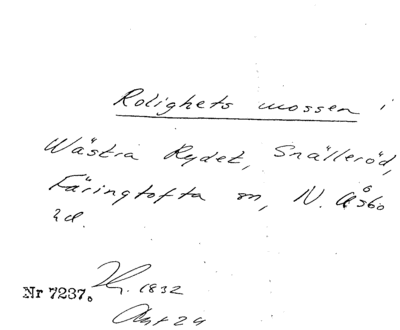 Rolighets mossen i
Wästra Rydet, Snälleröd,
Färingtofta sn, N. Åsbo
hd.
Nr 7237. 1832
Akt 24